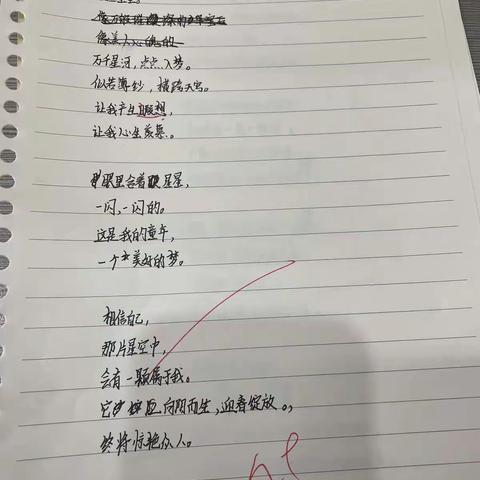 像美人心魄的
万千星河，点点入梦。
似若薄纱，横跨天宫。
让我产生遐想，
让我心生羡慕。
眼里含着星星，
一闪，一闪的。
这是我的童年，
一个美好的梦。
相信自己，
那片星空中，
会有一颗属于我。
它必应向阳而生，迎春绽放。，
终将惊艳众人。